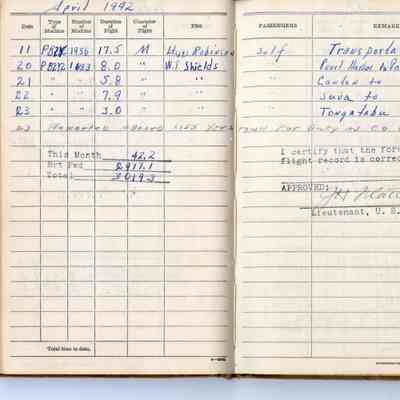 April 1942
Date Type of Machine Number of Machine Duration of Flight Character of Flight Pilot PASSENGERS REMARKS
11 PB2Y 1936 17.5 M Robinson Self Transporta
20 PB2Y2 1633 8.0 " W.J. Shields Pearl Harbor to Pa
21 " " 5.8 " " " Canton to
22 " " 7.9 " " " Suva to
23 " " 3.0 " " " Tongatabu
23 Reported aboard USS Yorktown For Duty as C.O.
This Month 42.2
Brt Fwd 2977.1
Total 3019.3
I certify that the fore
flight record is correc
APPROVED:
Lieutenant, U. S.
Total time to date,